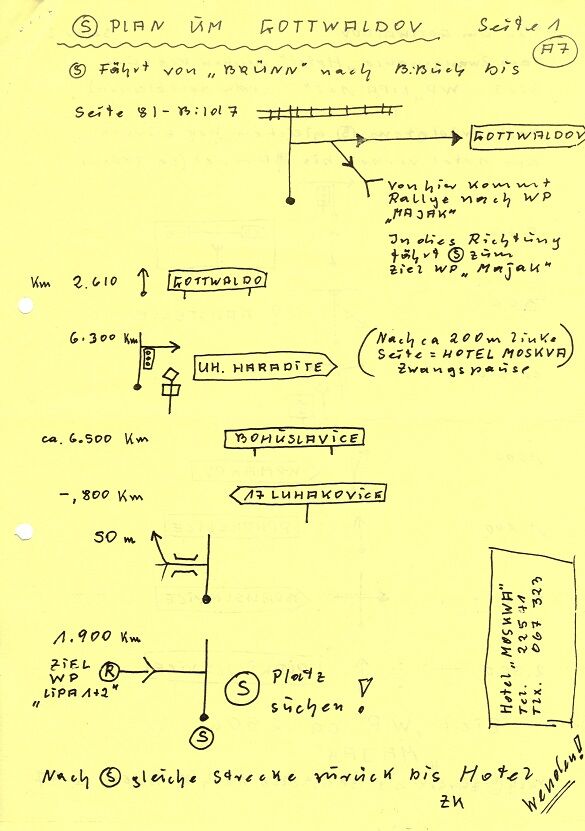 Ⓢ PLAN ÜM GOTTWALDOV Seite 1
A7
Ⓢ Fährt von „BRÜNN" nach B.Büch bis
Seite 81 - Bild 7
GOTTWALDOV
Von hier kommt
Rallye nach WP
„MAJAK"
In dies Richtung
fährt Ⓢ zum
Ziel WP „Majak"
Km 2.610 GOTTWALDO
6.300 Km
UH. HARADITE
(Nach ca 200m linke
Seite = HOTEL MOSKVA)
Zwangspause
ca. 6.500 Km BOHUSLAVICE
-,800 Km 17 LUHAKOVICE
50 m
1.900 Km
ZIEL
WP
„LIPA 1+2"
Ⓡ
Ⓢ Platz
suchen!
Ⓢ
Hotel „MOSKWA"
Tel. 225 71
Tlx. 067 323
Nach Ⓢ gleiche Strecke zurück bis Hotel
ZK
wenden!